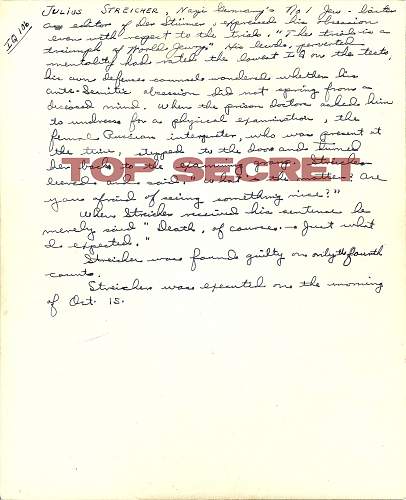 IQ 106
JULIUS STREICHER, Nazi Germany's No 1 Jew-baiter
as editor of Der Stürmer, expressed his obsession
even with respect to the trial. "The trial is a
triumph of World Jewry." His lewd, perverted
mentality had rated the lowest IQ on the tests,
his own defense counsel wondered whether his
anti-Semitic obsession did not spring from a
diseased mind. When the prison doctor asked him
to undress for a physical examination, the
female Russian interpreter, who was present at
the time, stepped to the door and turned
her back to the examining group. Streicher
TOP SECRET
leered and said, "What is the matter? Are
you afraid of seeing something nice?"
When Streicher received his sentence he
merely said "Death, of course. Just what
I expected."
Streicher was found guilty on only the fourth
counts.
Streicher was executed on the morning
of Oct. 15.